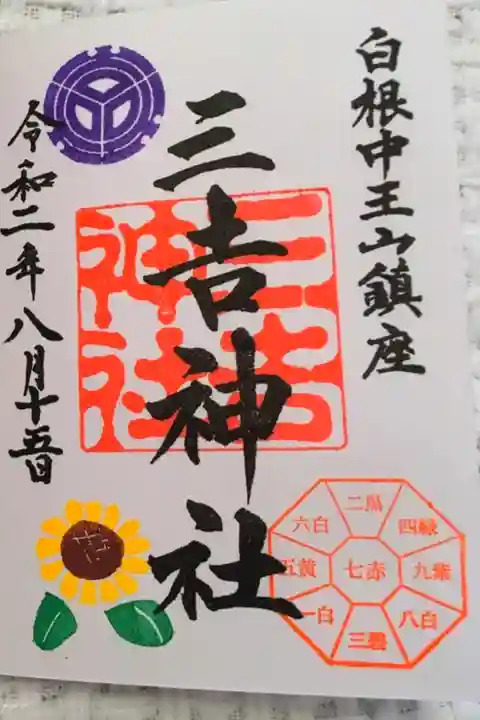 白根中王山鎮座
三吉神社
令和二年八月十五日
三吉
神社
二黒
六白
四緑
五黄
七赤
九紫
一白
八白
三碧